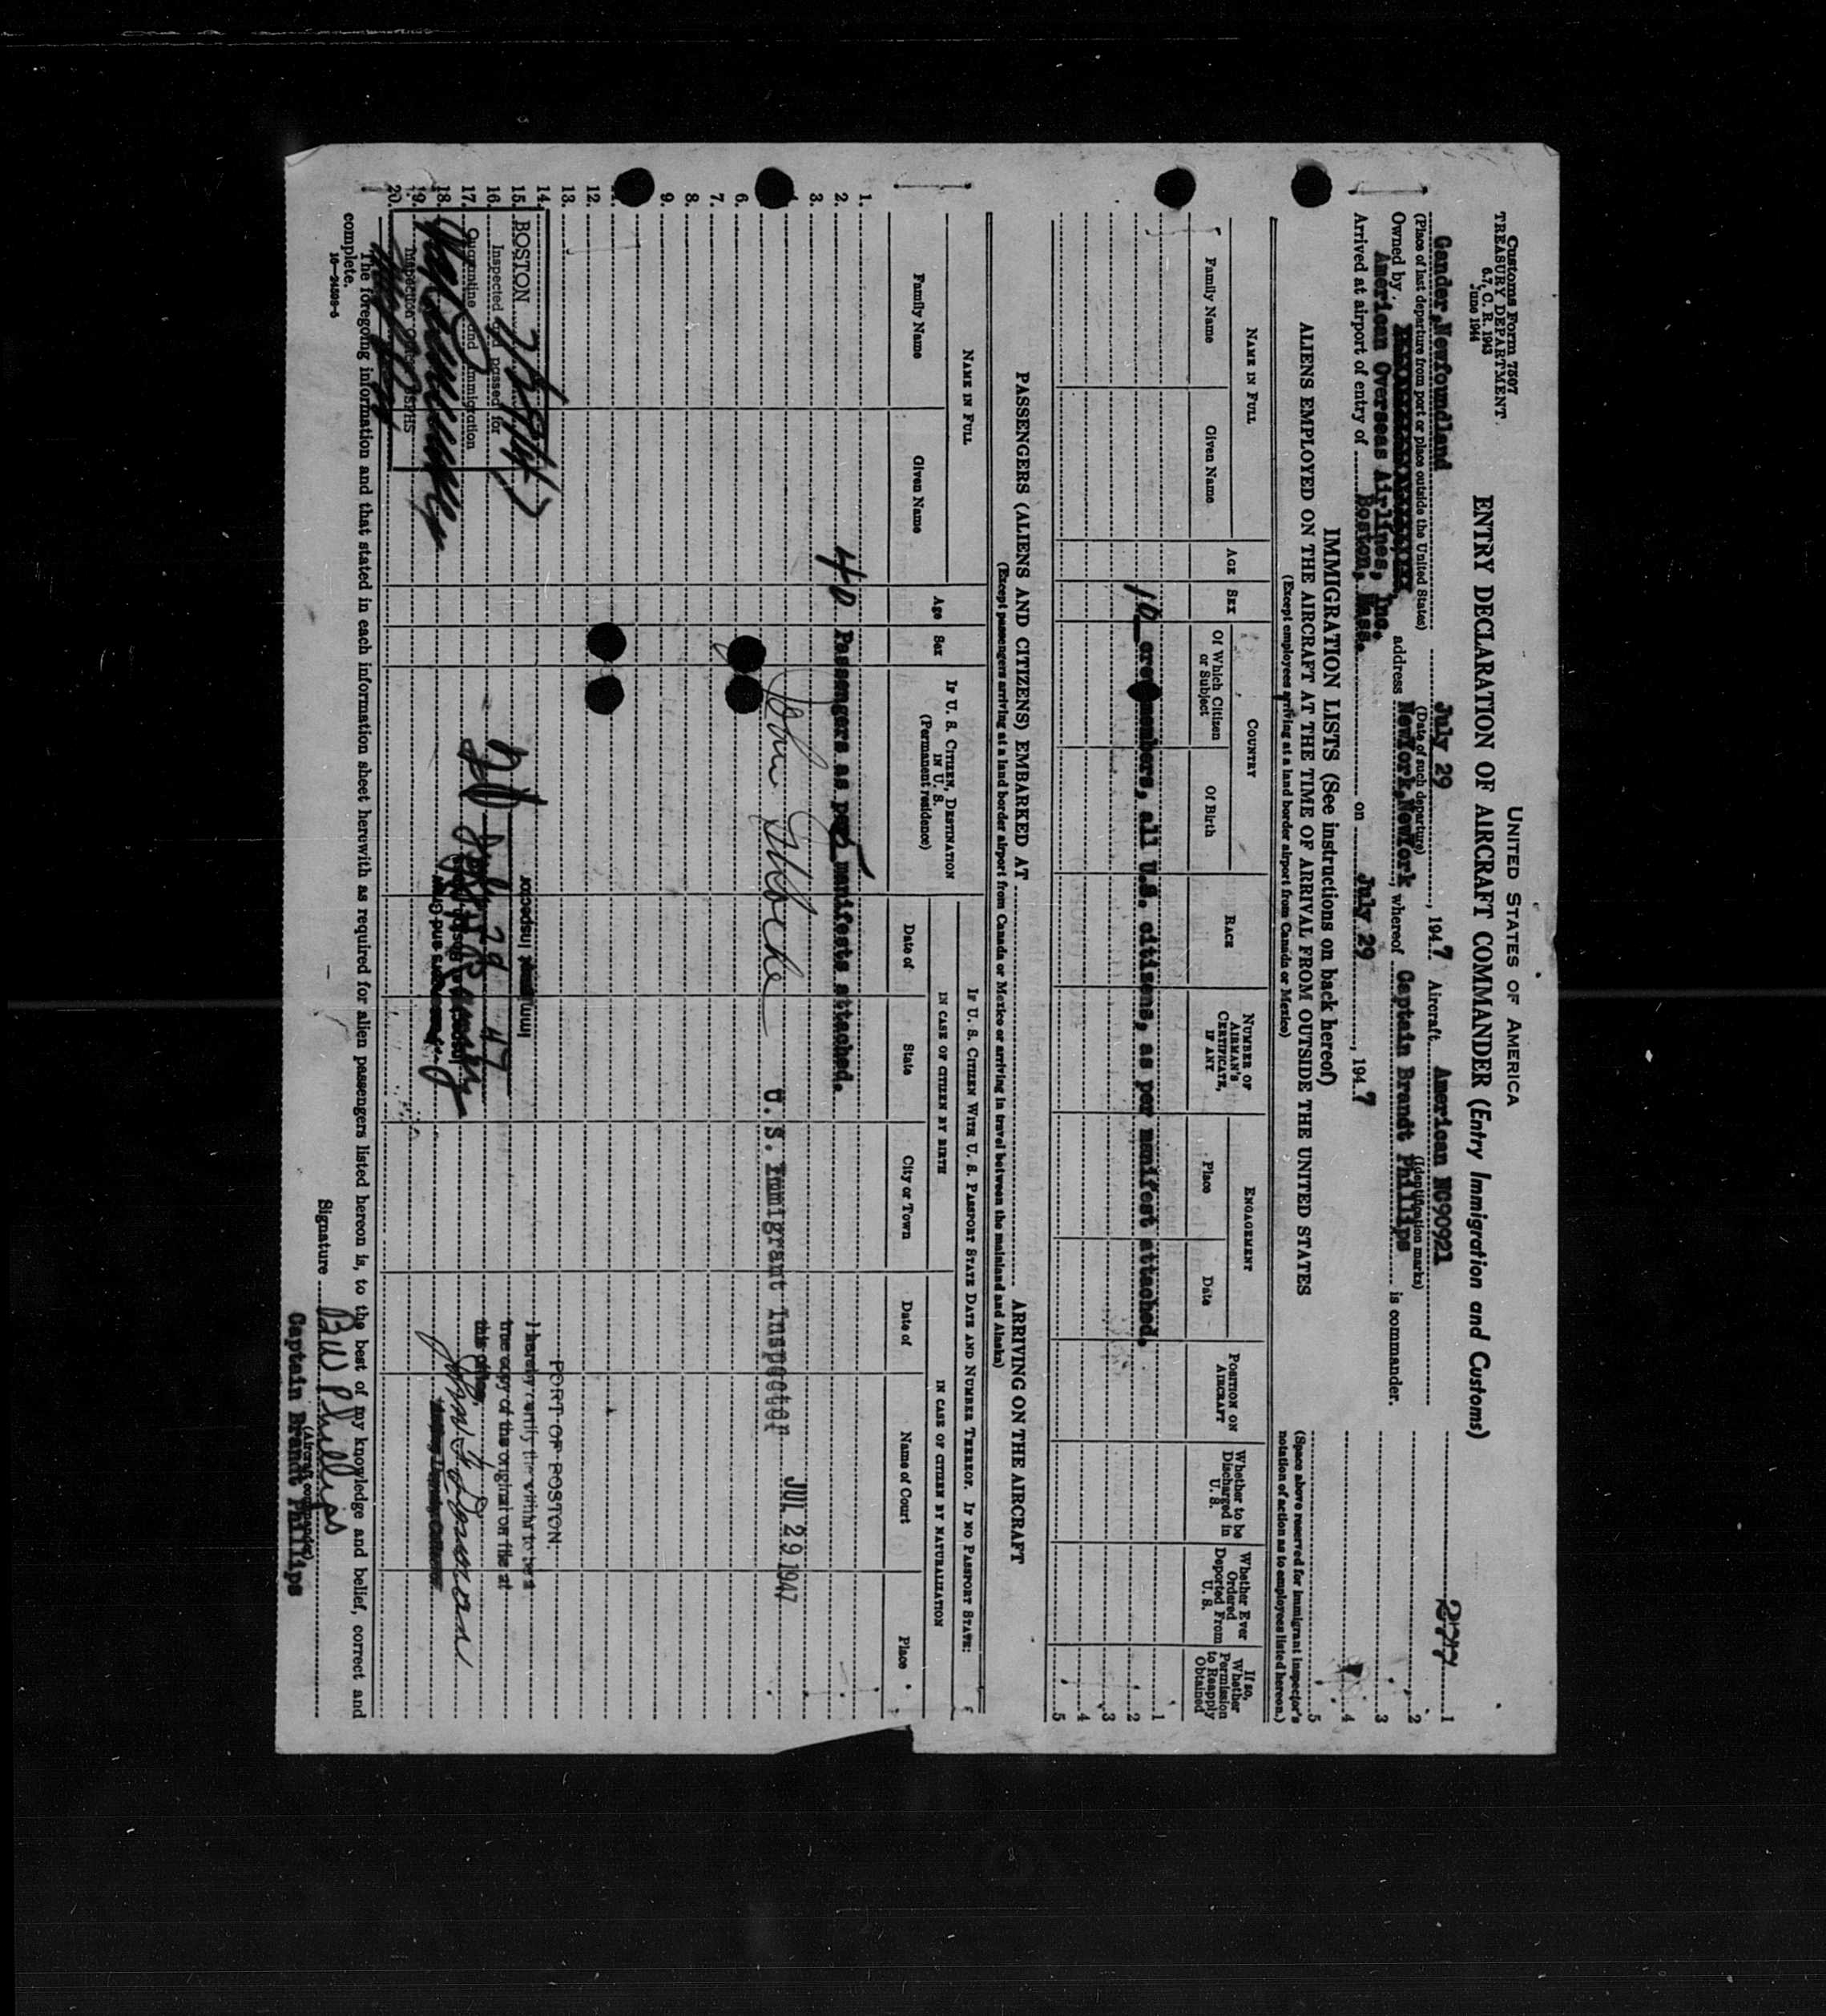 Customs Form 7507
TREASURY DEPARTMENT
6.7, C. R. 1943
June 1944
UNITED STATES OF AMERICA
ENTRY DECLARATION OF AIRCRAFT COMMANDER (Entry Immigration and Customs)
277
Gander, Newfoundland July 29, 1947 Aircraft American NC90921
(Place of last departure from port or place outside the United States) (Date of such departure) (Identification marks)
Owned by address NewYork, NewYork, whereof Captain Brandt Phillips is commander.
American Overseas Airlines, Inc.
Arrived at airport of entry of Boston, Mass. on July 29, 1947
1
2
3
4
5
(Space above reserved for immigrant inspector's notation of action as to employees listed hereon.)
IMMIGRATION LISTS (See instructions on back hereof)
ALIENS EMPLOYED ON THE AIRCRAFT AT THE TIME OF ARRIVAL FROM OUTSIDE THE UNITED STATES
(Except employees arriving at a land border airport from Canada or Mexico)
NAME IN FULL
Family Name
Given Name
AGE
SEX
COUNTRY
Of Which Citizen or Subject
Of Birth
RACE
NUMBER OF AIRMAN'S CERTIFICATE, IF ANY
ENGAGEMENT
Place
Date
POSITION ON AIRCRAFT
Whether to be Discharged in U. S.
Whether Ever Ordered Deported From U. S.
If so, Whether Permission to Reapply Obtained
10 crew members, all U.S. citizens, as per manifest attached.
1
2
3
4
5
PASSENGERS (ALIENS AND CITIZENS) EMBARKED AT ARRIVING ON THE AIRCRAFT
(Except passengers arriving at a land border airport from Canada or Mexico or arriving in travel between the mainland and Alaska)
NAME IN FULL
Family Name
Given Name
Age
Sex
IF U. S. CITIZEN, DESTINATION IN U. S.
(Permanent residence)
IF U. S. CITIZEN WITH U. S. PASSPORT STATE DATE AND NUMBER THEREOF. IF NO PASSPORT STATE:
IN CASE OF CITIZEN BY BIRTH
Date of
State
City or Town
IN CASE OF CITIZEN BY NATURALIZATION
Date of
Name of Court
Place
1.
2. 40 Passengers as per 5 manifests attached.
3.
U.S. Immigrant Inspector JUL 29 1947
6.
7.
8.
9.
12.
13.
14.
15.
16.
17.
18.
19.
20.
BOSTON
Inspected and passed for
Quarantine and Immigration
Inspection Officer USPHS
Immigrant Inspector
July 29 47
PORT OF BOSTON
I hereby certify the within to be a
true copy of the original on file at
this office.
The foregoing information and that stated in each information sheet herewith as required for alien passengers listed hereon is, to the best of my knowledge and belief, correct and
complete.
16—24508-5
Signature BW Phillips
(Aircraft commander)
Captain Brandt Phillips